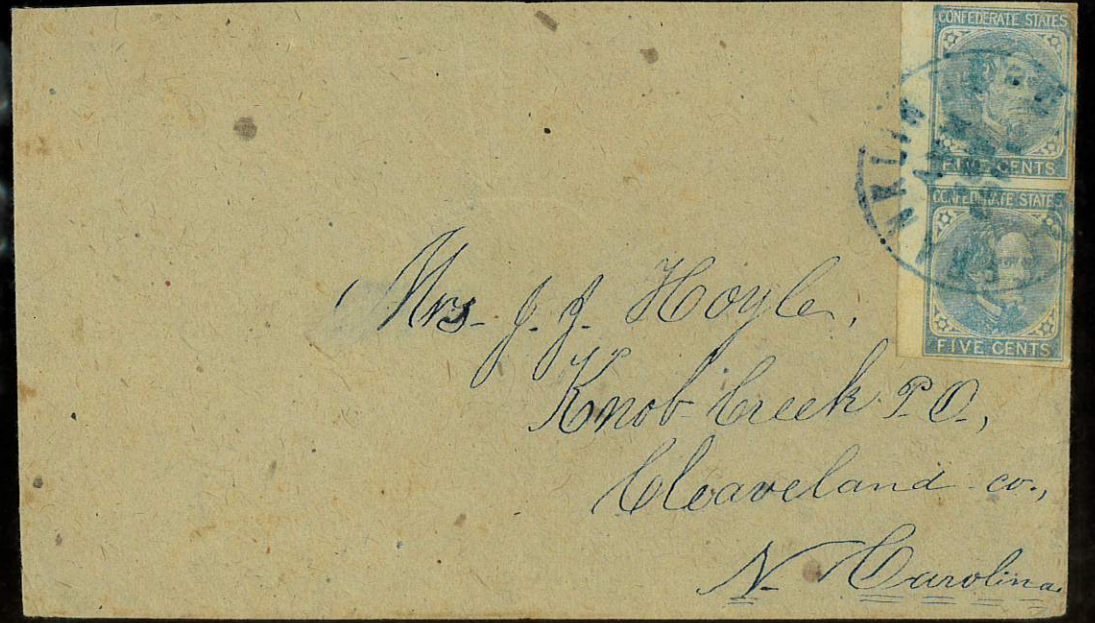 CONFEDERATE STATES
FIVE CENTS
CONFEDERATE STATES
FIVE CENTS
Mrs. J. J. Hoyle,
Knob Creek P.O.,
Cleaveland co.,
N. Carolina.